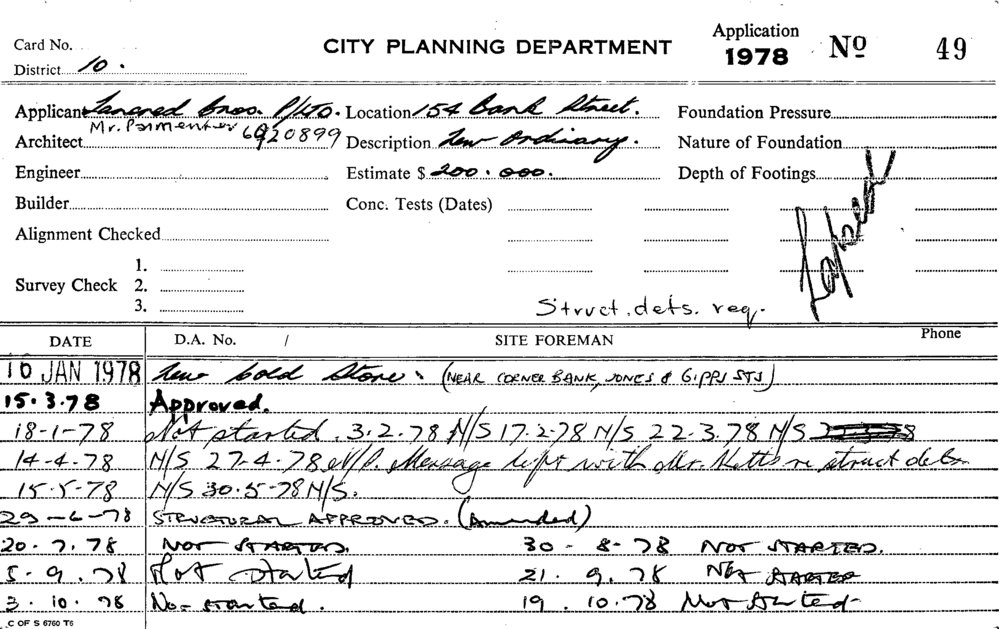 Card No.
CITY PLANNING DEPARTMENT
Application
1978 No 49
District 10.
Applicant Tancred Bros. P/LTD. Location 154 Bank Street. Foundation Pressure
Mr. Parmenter 6920899
Architect Description New Ordinary. Nature of Foundation
Engineer Estimate $ 200.000. Depth of Footings
Builder Conc. Tests (Dates)
Alignment Checked
1.
Survey Check 2.
3.
Struct. dets. req.
DATE D.A. No. / SITE FOREMAN Phone
10 JAN 1978 New Cold Store. (NEAR CORNER BANK, JONES & GIPPS STS)
15.3.78 Approved.
18-1-78 Not started. 3.2.78 N/S 17.2-78 N/S 22.3.78 N/S
14-4-78 N/S 27-4-78 N/S. Message left with Mr. re struct dets.
15-5-78 N/S 30.5-78 N/S.
29-6-78 STRUCTURAL APPROVED. (Amended)
20.7.78 NOT STARTED. 30-8-78 NOT STARTED.
5.9.78 Not started 21.9.78 NOT STARTED
3.10.78 Not started. 19.10.78 Not Started
C OF S 6760 T6